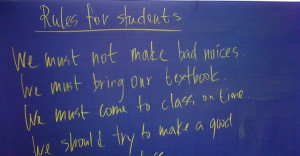 Rules for students
We must not make bad noices.
We must bring our textbook.
We must come to class on time.
We should try to make a good